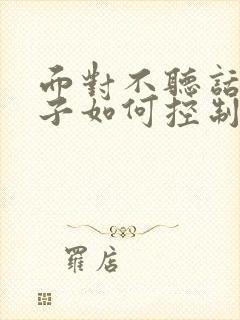 而對不聽話
子如何控制
羅店